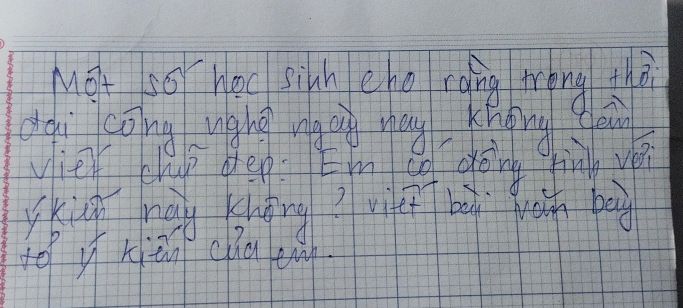 Một số học sinh cho rằng trong thời
đại công nghệ ngày nay không cần
viết chữ đẹp. Em có đồng tình với
ý kiến này không? viết bài văn bày
tỏ ý kiến của em.